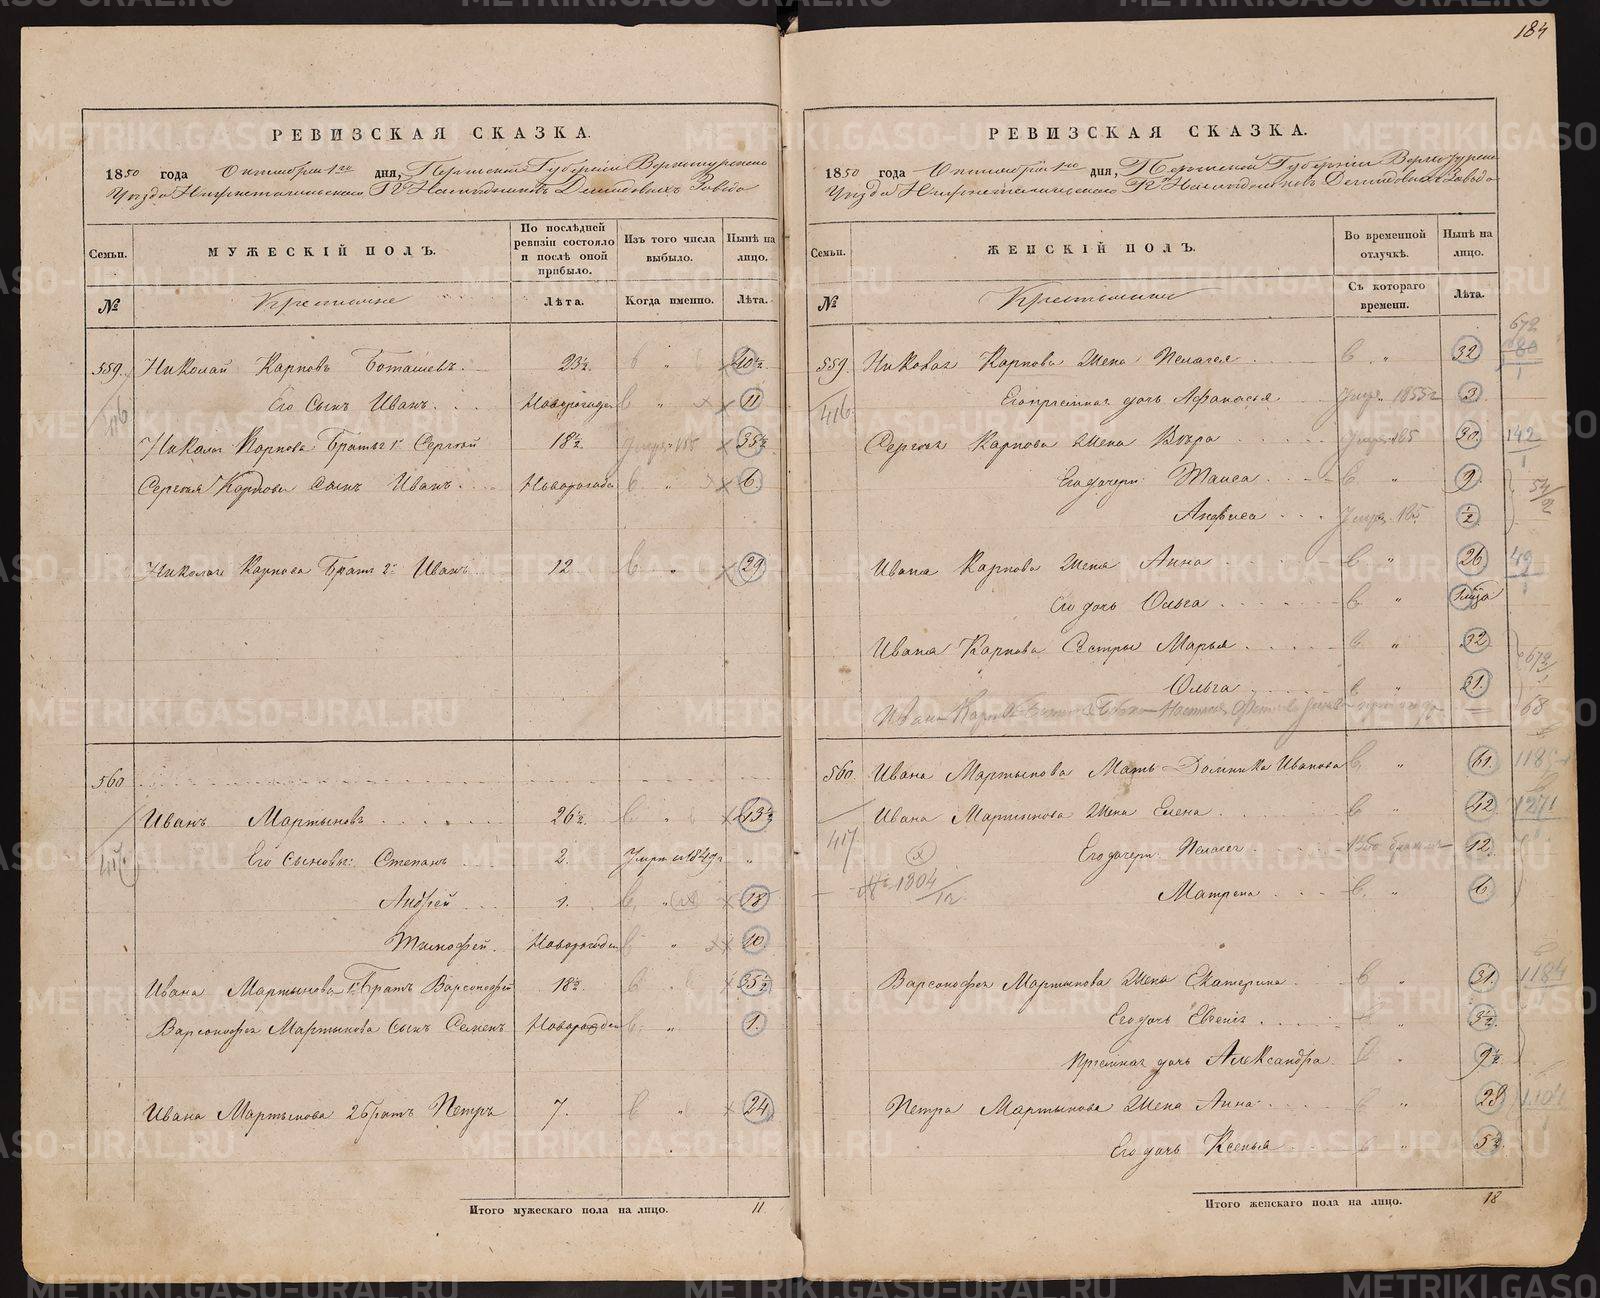 184
РЕВИЗСКАЯ СКАЗКА.
1850 года Октября 1го дня, Пермской Губернiи Верхотурскаго
Уѣзда Нижнетагильскаго Гг Наслѣдниковъ Демидовыхъ Завода
Семьи.
МУЖЕСКIЙ ПОЛЪ.
По послѣдней ревизiи состояло и послѣ оной прибыло.
Изъ того числа выбыло.
Нынѣ на лицо.
№
Крестьяне
Лѣта.
Когда именно.
Лѣта.
559. Николай Карповъ Боташевъ. 23½ 40½
416
Его Сынъ Иванъ. Новорожден 11
Николая Карпова Братъ 1й Сергѣй 18½ 35½
Сергѣя Карпова Сынъ Иванъ. Новорожден 6
Николая Карпова Братъ 2й Иванъ 12 29
560
417
Иванъ Мартыновъ 26½ 43½
Его Сыновья: Степанъ 2. Умеръ въ 1849г. "
Андрей 1. 18
Тимофей. Новорожден 10
Ивана Мартынова 1й Братъ Варсонофей 18½ 35½
Варсонофея Мартынова Сынъ Семенъ Новорожден 1.
Ивана Мартынова 2 Братъ Петръ 7. 24
Итого мужескаго пола на лицо. 11
РЕВИЗСКАЯ СКАЗКА.
1850 года Октября 1го дня, Пермской Губернiи Верхотурскаго
Уѣзда Нижнетагильскаго Гг Наслѣдниковъ Демидовыхъ Завода
Семьи.
ЖЕНСКIЙ ПОЛЪ.
Во временной отлучкѣ.
Нынѣ на лицо.
№
Крестьянки
Съ котораго времени.
Лѣта.
559. Николая Карпова Жена Пелагея 32
416
Его прiемная дочь Афанасья 1855г 3
Сергѣя Карпова Жена Вѣра 30. 142
Его дочери: Таиса 9
Анфиса ½
Ивана Карпова Жена Анна 26 49
Его дочь Ольга
Ивана Карпова Сестры Марья 32
Ольга 31.
68
560. Ивана Мартынова Мать Домника Иванова 61. 1185
Ивана Мартынова Жена Елена 42 1271
417
Его дочери: Пелагея 12.
№ 1304/12
Матрена 6
Варсонофея Мартынова Жена Екатерина 31. 1184
Его дочь Евгенiя 3½
Прiемная дочь Александра 9½
Петра Мартынова Жена Анна 23
Его дочь Ксенья 5½
Итого женскаго пола на лицо. 18
METRIKI.GASO-URAL.RU